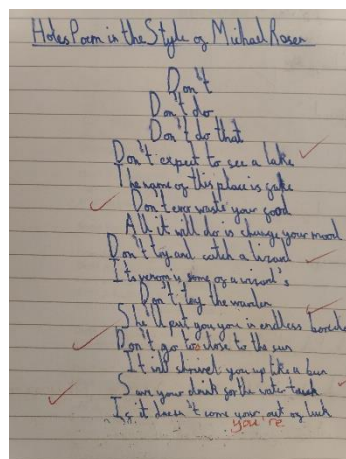 Holes Poem in the Style of Michael Rosen
Don't
Don't do
Don't do that
Don't expect to see a lake
The name of this place is fake
Don't ever waste your food
All it will do is change your mood
Don't try and catch a lizard
Its venom is some of a wizard's
Don't the warden
She'll put you you in endless
Don't go to close to the sun
It will shrivel you up like a bun
Save your drink for the water truck
If it doesn't come your out of luck
you're